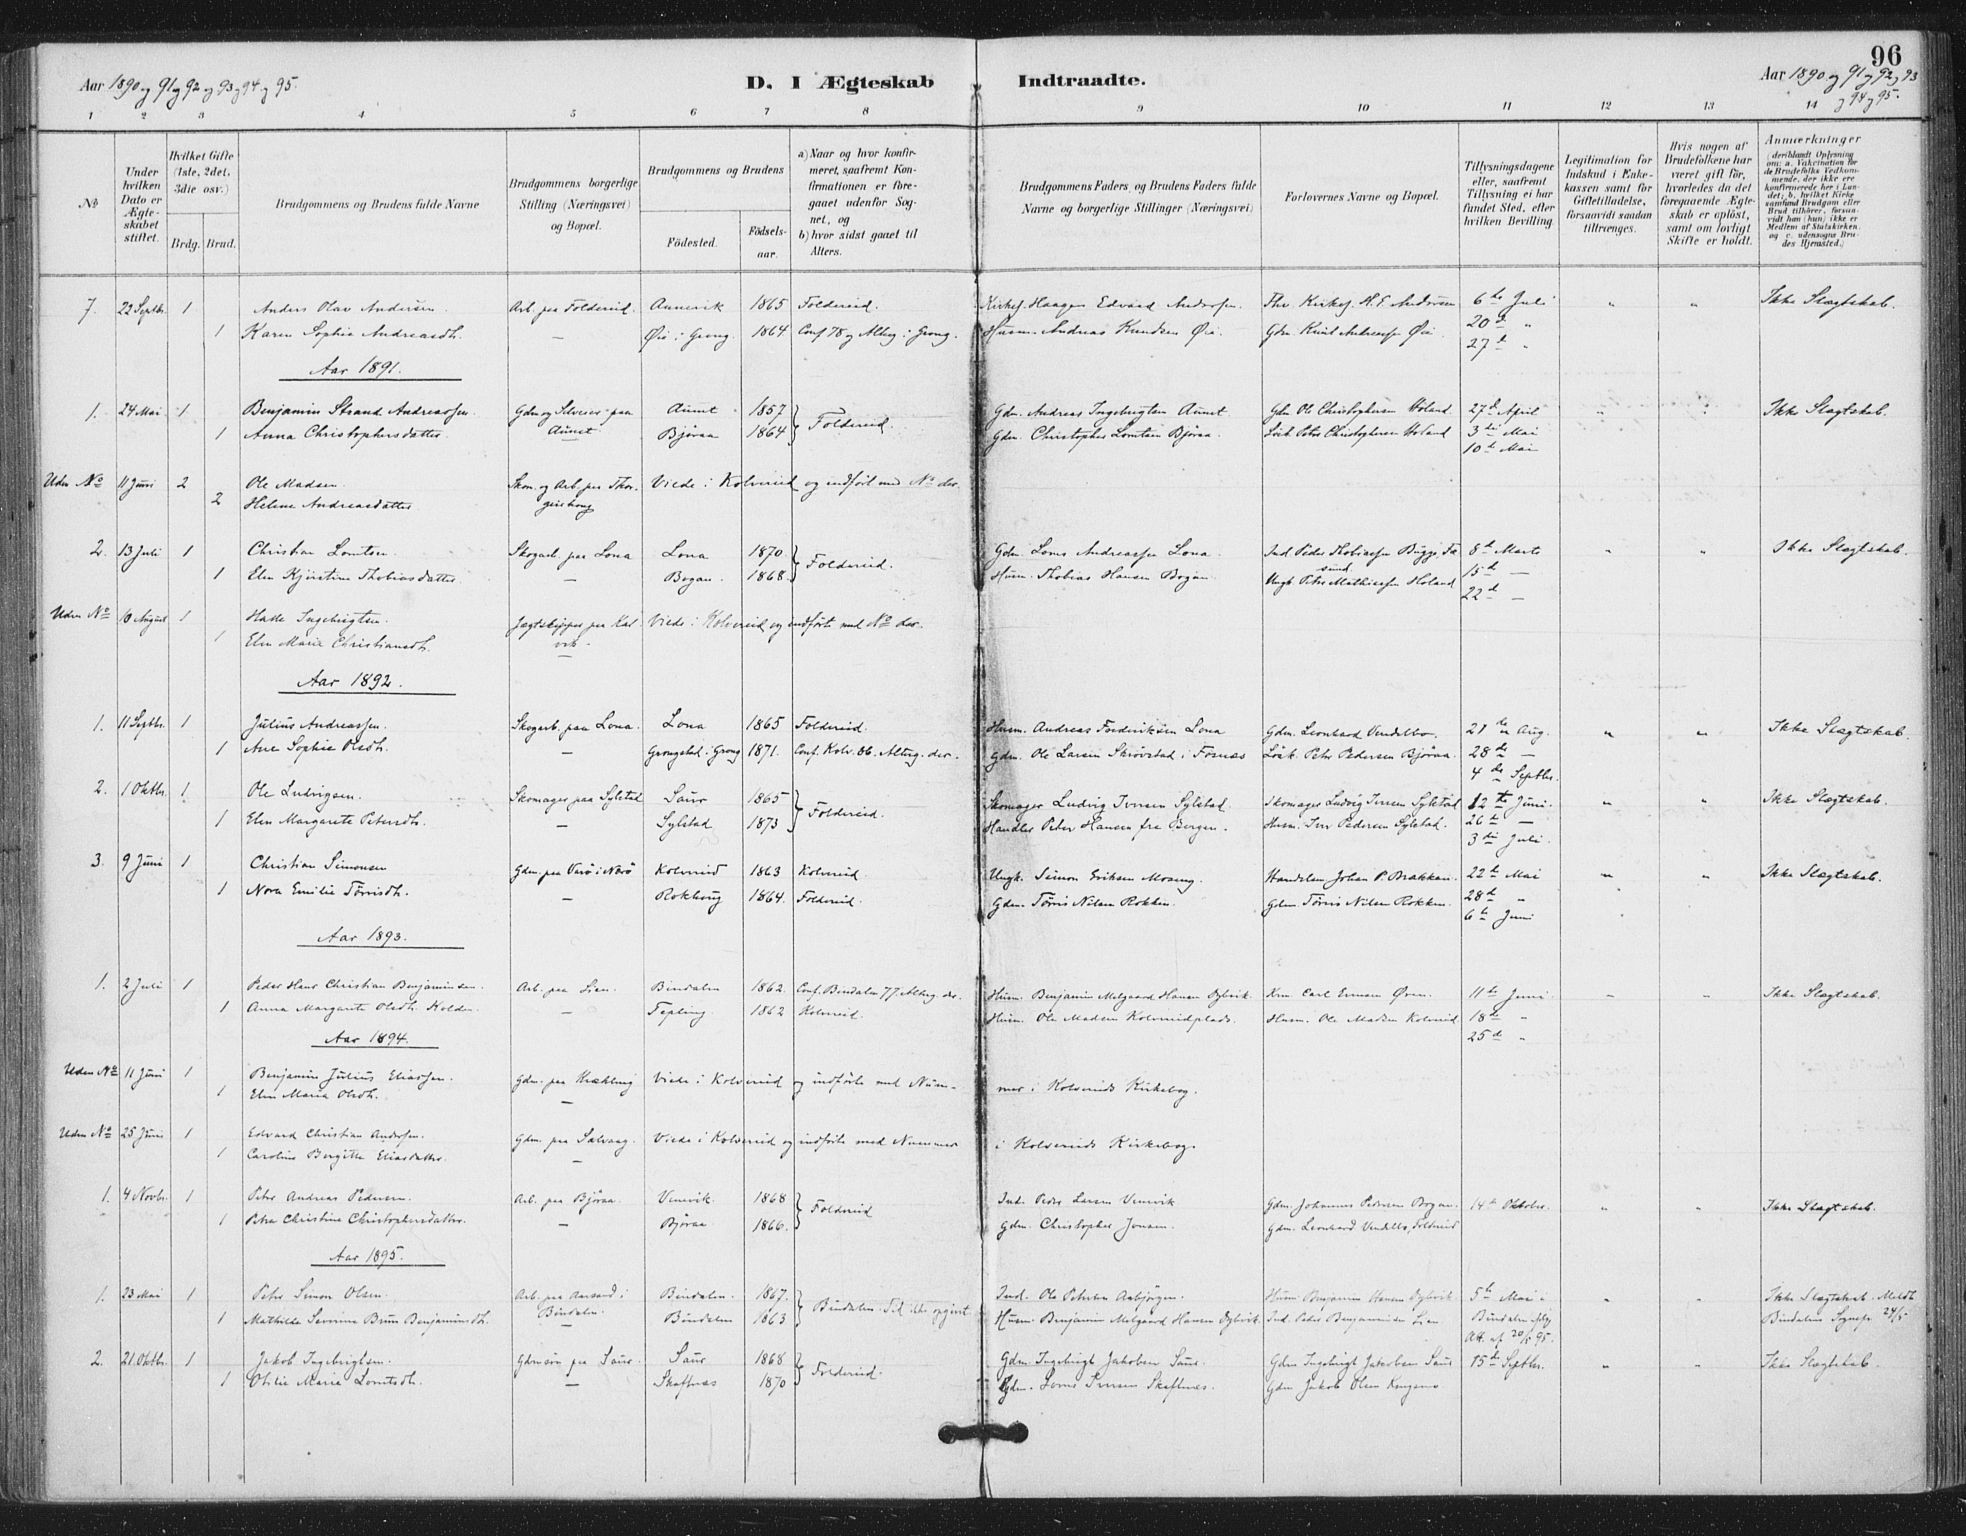 96
Aar 1890 og 91 og 92 og 93 og 94 og 95.
D. I Ægteskab Indtraadte.
Aar 1890 og 91 og 92 og 93
og 94 og 95.
1 2 3 4 5 6 7 8 9 10 11 12 13 14
No
Under hvilken Dato er Ægteskabet stiftet.
Hvilket Gifte (1ste, 2det, 3die osv.)
Brdg. Brud.
Brudgommens og Brudens fulde Navne
Brudgommens borgerlige Stilling (Næringsvei) og Bopæl.
Brudgommens og Brudens
Födested. Födselsaar.
a) Naar og hvor konfirmeret, saafremt Konfirmationen er foregaaet udenfor Sognet, og
b) hvor sidst gaaet til Alters.
Brudgommens Faders, og Brudens Faders fulde Navne og borgerlige Stillinger (Næringsvei)
Forlovernes Navne og Bopæl.
Tillysningsdagene eller, saafremt Tillysning ei har fundet Sted, efter hvilken Bevilling.
Legitimation for Indskud i Enkekassen samt for Giftetilladelse, forsaavidt saadan tiltrænges.
Hvis nogen af Brudefolkene har været gift för, hvorledes da det foregaaende Ægteskab er oplöst, samt om lovligt Skifte er holdt.
Anmærkninger
(deriblandt Oplysning om: a. Vakcination for de Brudefolks Vedkommende, der ikke ere konfirmerede her i Landet; b. hvilket Kirkesamfund Brudgom eller Brud tilhörer, forsaavidt han (hun) ikke er Medlem af Statskirken, og c. udensogns Brudes Hjemsted.)
7. 22 Septbr. 1 Anders Olav Andersen. Arb. paa Foldereid. Aunevik 1865 Foldereid. Kirkes. Haagen Edvard Andersen. Kirkes. H. E. Andersen 6te Juli " " Ikke Slægtskab.
1 Karen Sophie Andreasdtr. — Øie i Grong. 1864 Conf 78 og Altrg. i Grong. Husm. Andreas Knudsen Øie. Gdm. Knut Andreass. Øie. 20de "
27de "
Aar 1891.
1. 24 Mai 1 Benjamin Strand Andreassen. Gdm og Selveier paa Aunet 1857 Foldereid. Gdm. Andreas Ingebrigtsen Aunet Gdm Ole Christophersen Höland 27de April " " Ikke Slægtskab.
1 Anna Christophersdatter. Aunet Björaa 1864 Gdm. Christopher Lorntsen Björaa. Peter Christophersen Höland 3die Mai
10de Mai
Uden No 11 Juni 2 Ole Madsen. Skom. og Arb. paa Viede i Kolvereid og indfört med No der.
2 Helene Andreasdatter
2. 13 Juli 1 Christian Lorntsen. Skogarb. paa Lona Lona 1870 Foldereid. Gdm Lorns Andreassen Lona. Ind. Peder Thobiassen Bugge, 8de Marts " " Ikke Slægtskab.
1 Elen Kjirstine Thobiasdatter. — Bogan. 1868. Husm. Thobias Hansen Bogan. Ungk. Peter Mathiassen Höland 15de —
22de —
Uden No 16 August 1 Ingebrigtsen. Jægtskipper paa Viede i Kolvereid og indförte med No der.
1 Elen Maria Christiansdtr. —
Aar 1892.
1. 11 Septbr. 1 Julius Andreassen. Skogarb. paa Lona. Lona 1865 Foldereid. Husm. Andreas Fredriksen Lona Gdm. Leonhard Vendelbo. 21de Aug. " " Ikke Slægtskab.
1 Ane Sophie Olsdtr. — Grongstad i Grong 1871. Conf. Kolv. 86. Altrg. der. Gdm. Ole Larsen Skrövstad i Fosnæs Peter Pedersen Björaa 28de —
4de Septbr.
2. 1 Oktbr. 1 Ole Ludvigsen. Skomager paa Sylstad Saur 1865 Foldereid. Skomager Ludvig Iversen Sylstad. Skomager Ludvig Iversen Sylstad 12te Juni. " " Ikke Slægtskab.
1 Elen Margarete Petersdtr. — Sylstad 1873 Handler Peter Hansen fra Bergen. Husm. Iver Pedersen Sylstad. 26te —
3die Juli.
3. 9 Juni 1 Christian Simonsen Gdm. paa Varö i Nærö Kolvereid 1863 Kolvereid. Ungk. Simon Eriksen Moseng. Handelsm. Johan P. Brækkan. 22de Mai " " Ikke Slægtskab.
1 Nora Emilie Törrisdtr. — 1864. Foldereid. Gdm. Törris Nilsen Rokken. Gdm. Törris Nilsen Rokken. 28de "
6te Juni
Aar 1893.
1. 2 Juli 1 Peder Hans Christian Benjaminsen. Arb. paa Lien. Bindalen 1862. Conf. Bindalen 77. Altrg. der. Husm. Benjamin Melgaard Hansen Krm. Carl 11te Juni " " Ikke Slægtskab.
1 Anna Margarete Olsdtr. Kolden. — Tepling. 1862 Kolvereid. Husm. Ole Madsen Kolvereidplads. Husm. Ole Madsen Kolvereid 18de "
25de "
Aar 1894.
Uden No 11 Juni 1 Benjamin Julius Eliassen. Gdm. paa Viede i Kolvereid og indförte med Num- mer i Kolvereids Kirkebog.
1 Elen Maria Olsdtr. —
Uden No 25 Juni 1 Edvard Christian Andersen. Gdm. paa Viede i Kolvereid og indförte med Nummer i Kolvereids Kirkebog.
1 Caroline Bergitte Eliasdatter. —
1. 4 Novbr. 1 Peter Andreas Pedersen. Arb. paa Björaa. Vennevik. 1868 Foldereid Ind. Peder Larsen Vennevik Gdm. Johannes Pedersen Bogan. 14de Oktober. " " Ikke Slægtskab.
1 Petra Christine Christophersdatter. — Björaa 1866. Gdm. Christopher Jonsen. Gdm. Leonhard Vendelbo, Foldereid
Aar 1895.
1. 23 Mai 1 Peter Simon Olsen. Arb. paa Aarsand i Bindalen. 1867. Bindalen. Tid ikke opgivet Ind. Ole Petersen Husm Benjamin Hansen 5te Mai i " " Ikke Slægtskab. Meldt
1 Mathilde Severine Brun Benjaminsdtr. Bindalen. Bindalen 1863 Husm. Benjamin Melgaard Hansen Ind. Peder Benjaminsen Lien Bindalen Bindalens Sognepr. 24/5
Att. af 20/5 95.
2. 21 Oktbr. 1 Jakob Ingebrigtsen. Gdmsön paa Saur. Saur 1868 Foldereid. Gdm. Ingebrigt Jakobsen Saur. Gdm Ingebrigt Jakobsen Saur 15de Septbr. " " Ikke Slægtskab.
1 Otilie Maria Lorntsdtr. — Skaftnæs 1870 Gdm. Lorns Iversen Skaftnæs. Gdm Jakob Olsen Kongsmo